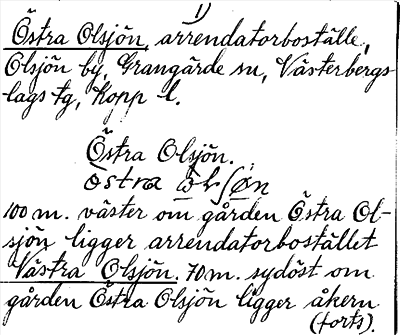 1)
Östra Olsjön, arrendatorboställe,
Olsjön by, Grangärde sn, Västerbergs-
lags tg, Kopp l.
Östra Olsjön.
östra ω̄lʃøn
100 m. väster om gården Östra Ol-
sjön ligger arrendatorbostället
Västra Olsjön. 70 m. sydöst om
gården Östra Olsjön ligger åkern
(forts).